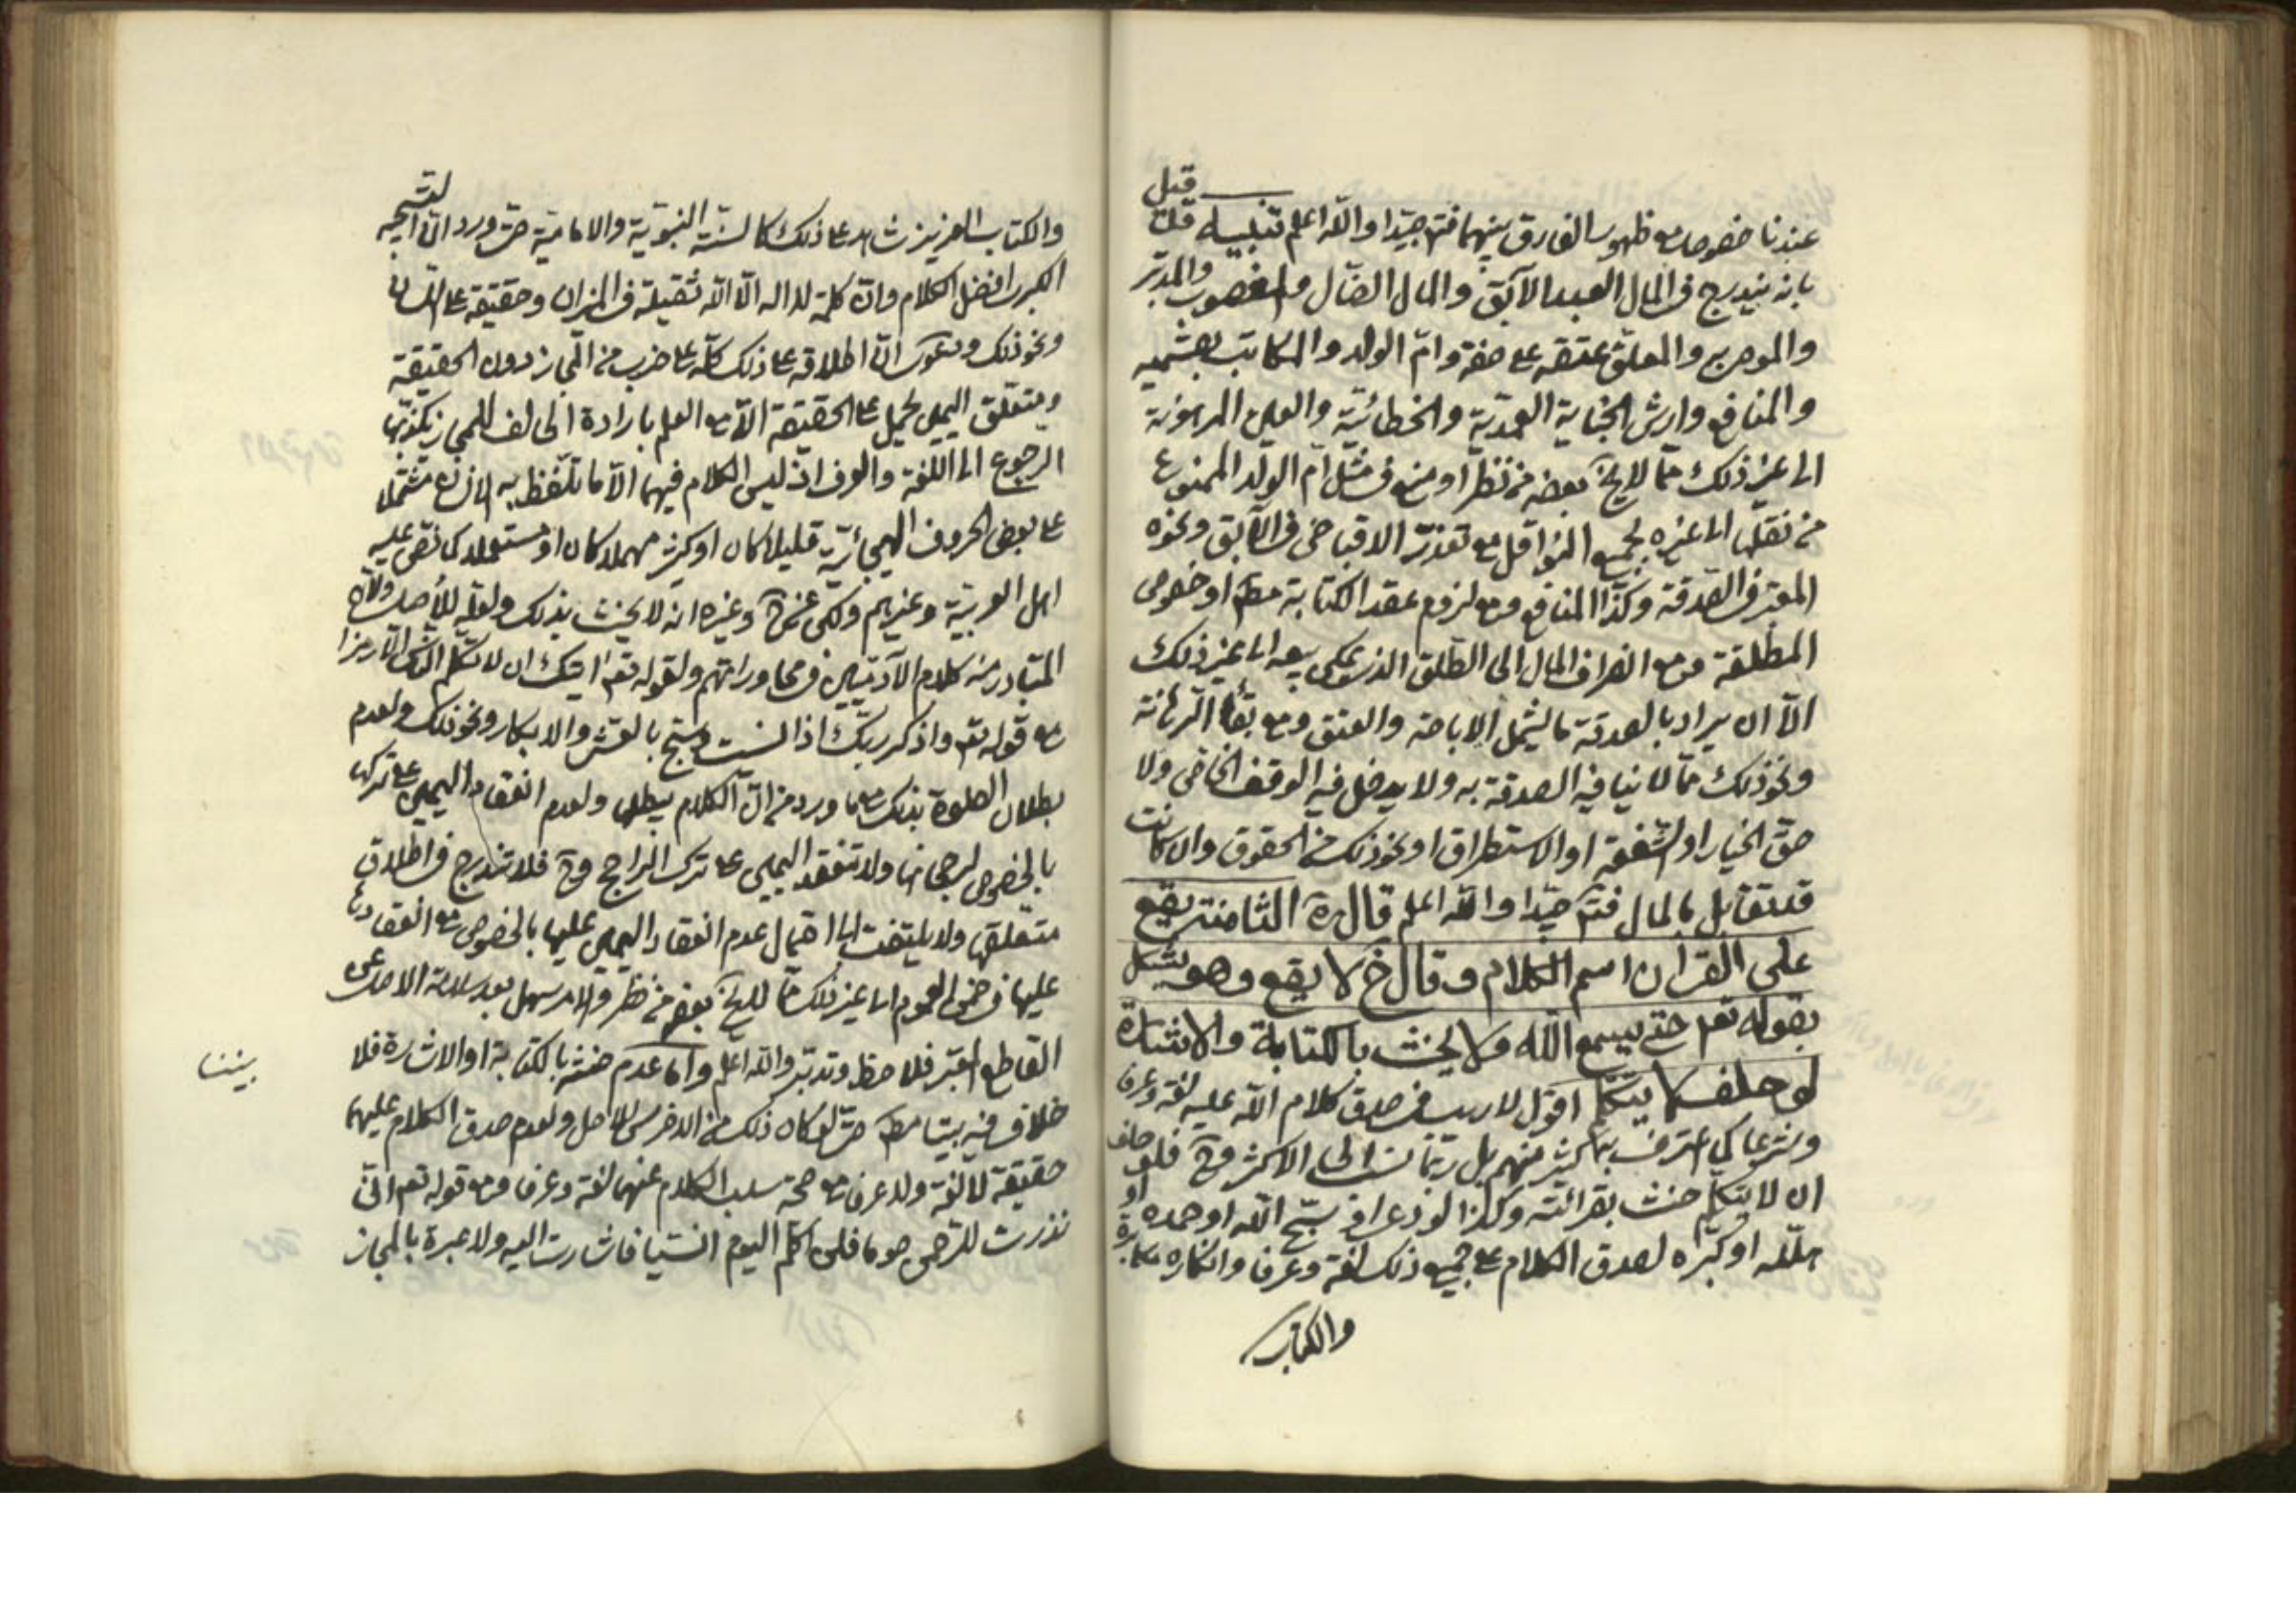 عندنا خصوصا مع ظهور الفارق بينهما فتم جيدا والله اعلم تنبيه قيل
بانه يندرج فى المال العبد الآبق والمال الضال والمغصوب والمدبر
والموصى به والمعلق عتقه على صفة وام الولد والمكاتب بقسميه
والمنافع وارش الجناية العمدية والخطائية والعين المرهونة
الى غير ذلك مما لا يخ بعضه من نظر او منع فى مثل ام الولد الممنوع
من نقلها الى غيره بجميع النواقل مع تعذر الاقباض فى الآبق ونحوه
المعتبر فى الصدقة وكذا المنافع ومع لزوم عقد الكتابة مط او خصوص
المطلقة ومع انصراف المال الى الطلق الذى يمكن بيعه الى غير ذلك
الا ان يراد بالصدقة ما يشمل الاباحة والعتق ومع بقاء الرهانة
ونحو ذلك مما لا ينافيه الصدقة به ولا يدخل فيه الوقف الخاص ولا
حق الخيار او الشفعة او الاستطراق او نحو ذلك من الحقوق وان كانت
قد تقابل بالمال فتم جيدا والله اعلم قال ره الثامنة يقع
على القران اسم الكلام وقال خ لا يقع وهو يشكل
بقوله تعم حتى يسمع كلام الله ولا يحنث بالكتابة والاشارة
لو حلف لا يتكلم اقول لا ريب فى صدق كلام الله عليه لغة وعرفا
وشرعا كما اعترف به كثير منهم بل ربما نسب الى الاكثر وح فلو حلف
ان لا يتكلم حنث بقرائته وكذا لو دعا او سبح الله او حمده او
هلله او كبره لصدق الكلام على جميع ذلك لغة وعرفا وانكاره مكابرة
والكتاب
والكتاب العزيز شاهد على ذلك كالسنة النبوية والامامية حتى ورد ان التسبيحه
الكبرى افضل الكلام وان كلمة لا اله الا الله ثقيلة فى الميزان وخفيفة على اللسان
ونحو ذلك ودعوى ان اطلاقه على ذلك كله على ضرب من المجاز دون الحقيقة
ومتعلق اليمين يحمل على الحقيقة الا مع العلم بارادة الحالف للمجاز يكذبها
الرجوع الى اللغة والعرف اذ ليس الكلام فيهما الا ما تلفظ به الانسان مشتملا
على بعض الحروف الهجائية قليلا كان او كثيرا مهملا كان او مستعملا كما نص عليه
اهل العربية وغيرهم ولكن عن خ وغيره انه لا يحنث بذلك ولعله للاصل ولانه
المتبادر منه كلام الآدميين فى محاوراتهم ولقوله تعم ايتك ان لا تكلم الناس الا رمزا
مع قوله تعم واذكر ربك اذا نسيت وسبح بالعشى والابكار ونحو ذلك ولعدم
بطلان الصلوة بذلك مع ما ورد من ان الكلام يبطلها ولعدم انعقاد اليمين على تركها
بالخصوص لرجحانها ولا تنعقد اليمين على ترك الراجح وح فلا تندرج فى اطلاق
متعلقها ولا يلتفت الى احتمال عدم انعقاد اليمين عليها بالخصوص مع انعقادها
عليها فى ضمن العموم الى غير ذلك مما لا يخ بعضه من نظر والامر سهل بعد سلامة الاصل عن
القاطع المعتبر فلاحظ وتدبر والله اعلم واما عدم حنثه بالكتابة او الاشارة فلا
خلاف فيه بيننا مط حتى لو كان ذلك من الاخرس للاصل ولعدم صدق الكلام عليهما
حقيقة لا لغة ولا عرفا مع صحة سلب الكلام عنهما لغة وعرفا ومع قوله تعم انى
نذرت للرحمن صوما فلن اكلم اليوم انسيا فاشارت اليه ولا عبرة بالمجاز
بيننا